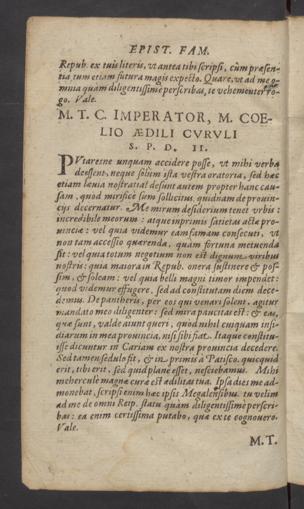 EPIST. FAM.
Repub. ex tuis literis, vt antea tibi scripsi, cùm præsen-
tia tum etiam futura magis expecto. Quare, vt ad me o-
mnia quam diligentissime perscribas, te vehementer ro-
go. Vale.
M. T. C. IMPERATOR, M. COE-
LIO ÆDILI CVRVLI
S. P. D. II.
PVtaresne unquam accidere posse, vt mihi verba
deessent, neque solùm ista vestra oratoria, sed hæc
etiam leuia nostratia? desunt autem propter hanc cau-
sam, quod mirifice sum sollicitus, quidnam de prouin-
cijs decernatur. Me mirum desiderium tenet vrbis:
incredibile meorum: atque inprimis satietas autē pro-
uinciæ: vel quia videmur eam famam consecuti, vt
non tam accessio quærenda, quàm fortuna metuenda
sit: vel quia totum negotium non est dignum viribus
nostris: quia maiora in Repub. onera sustinere & pos-
sim, & soleam: vel quia belli magni timor impendet:
quod videmur effugere, sed ad constitutam diem dece-
demus. De pantheris, per eos qui venari solent, agitur
mandato meo diligenter: sed mira paucitas est: & eas,
quæ sunt, valde aiunt queri, quod nihil cuiquam insi-
diarum in mea prouincia, nisi sibi fiat. Itaque constitu-
isse dicuntur in Cariam ex nostra prouincia decedere.
Sed tamen sedulo fit, & in primis à Patisco. quicquid
erit, tibi erit. sed quid plane esset, nesciebamus. Mihi
mehercule magnæ curæ est ædilitas tua. Ipsa dies me ad-
monebat, scripsi enim hæc ipsis Megalensibus. tu velim
ad me de omni Reip. statu quàm diligentissime perscri-
bas: ea enim certissima putabo, quæ ex te cognouero.
Vale.
M.T.